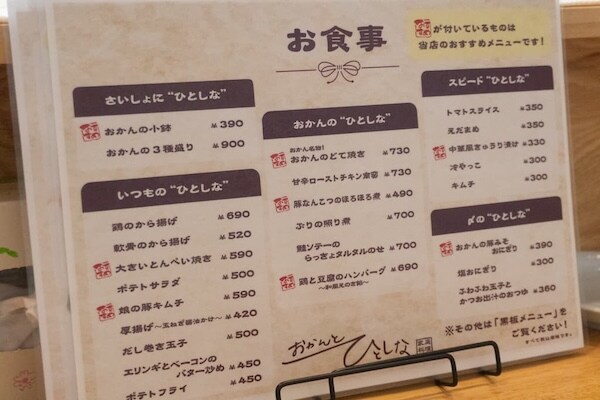 お食事
が付いているものは
当店のおすすめメニューです！
さいしょに“ひとしな”
おかんの小鉢 ¥390
おかんの3種盛り ¥900
いつもの“ひとしな”
鶏のから揚げ ¥690
軟骨のから揚げ ¥520
大きいとんぺい焼き ¥590
ポテトサラダ ¥500
娘の豚キムチ ¥590
厚揚げ〜玉ねぎ醤油かけ〜 ¥420
だし巻き玉子 ¥500
エリンギとベーコンの
バター炒め ¥450
ポテトフライ ¥450
おかんの“ひとしな”
おかん名物！
おかんのどて焼き ¥730
甘辛ローストチキン南蛮 ¥730
豚なんこつのほろほろ煮 ¥490
ぶりの照り煮 ¥700
鮭ソテーの
らっきょタルタルのせ ¥700
鶏と豆腐のハンバーグ ¥690
おかんと
ひとしな
家庭料理
スピード“ひとしな”
トマトスライス ¥350
えだまめ ¥350
中華風きゅうり漬け ¥330
冷やっこ ¥300
キムチ ¥300
〆の“ひとしな”
おかんの豚みそ
おにぎり ¥390
焼おにぎり ¥300
ふわふわ玉子と
かつお出汁のおつゆ ¥360
※その他は「黒板メニュー」を
ご覧ください！
すべて税込価格です。